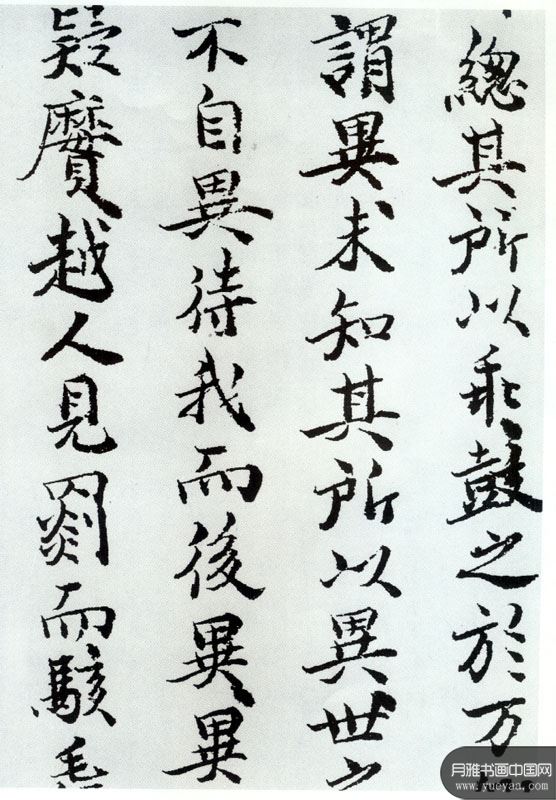 總其所以乖鼓之於万
謂異未知其所以異世之
不自異待我而後異異
疑黂越人見罽而駭
月雅书画中国网
www.yueyaa.com